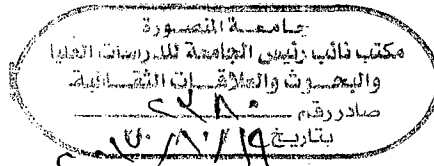 جامعة المنصورة
مكتب نائب رئيس الجامعة للدراسات العليا
والبحوث والعلاقات الثقافية
صادر رقم ٢٢٨٠
بتاريخ